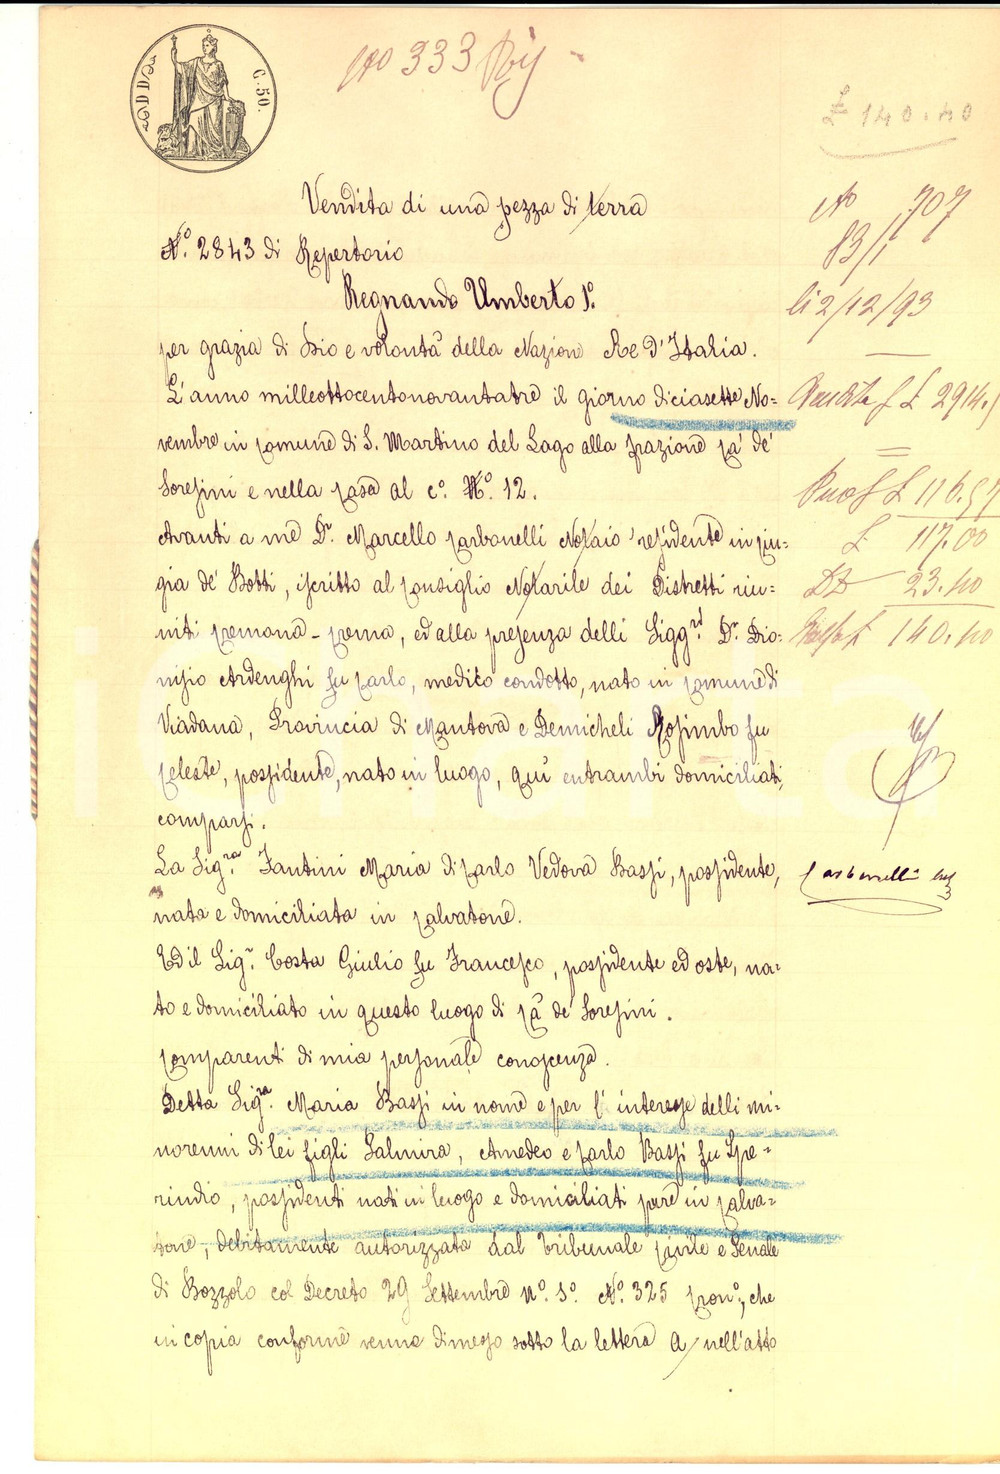 DDA
C. 50.
No 333
£ 140.40
Vendita di una pezza di terra
N.º 2843 di Repertorio
Regnando Umberto Iº.
per grazia di Dio e volontà della Nazione Re D'Italia.
L'anno milleottocentonovantatre il giorno diciasette No-
vembre in Comune di S. Martino del Lago alla frazione Cà de'
Soresini e nella Casa al cº. Nº. 12.
Avanti a me Dr. Marcello Carbonelli Notaio residente in Cin-
gia de' Botti, iscritto al Consiglio Notarile dei Distretti riu-
niti Cremona-Crema, ed alla presenza delli Sigg.ri Dr. Dio-
nisio Ardenghi fu Carlo, medico condotto, nato in Comune di
Viadana, Provincia di Mantova e Demicheli Rosimbo fu
Celeste, possidente, nato in luogo, qui entrambi domiciliati,
comparsi.
La Sig.ra Fantini Maria di Carlo Vedova Bassi, possidente,
nata e domiciliata in Calvatone.
Ed il Sig.r Costa Giulio fu Francesco, possidente ed oste, na-
to e domiciliato in questo luogo di Cà de' Soresini.
Comparenti di mia personale conoscenza.
Detta Sig.ra Maria Bassi in nome e per l'interesse delli mi-
norenni di lei figli Palmira, Amedeo e Carlo Bassi fu Spe-
rindio, possidenti nati in luogo e domiciliati pure in Calva-
tone, debitamente autorizzata dal Tribunale Civile e Penale
di Bozzolo col Decreto 29 Settembre nº. sº. Nº. 325 Cronº, che
in copia conforme venne dimesso sotto la lettera A/ nell'atto
No 707
83/1
li 2/12/93
Vendita £ 2914.
£ 116.57
£ 117.00
DD 23.40
£ 140.40
Carbonelli